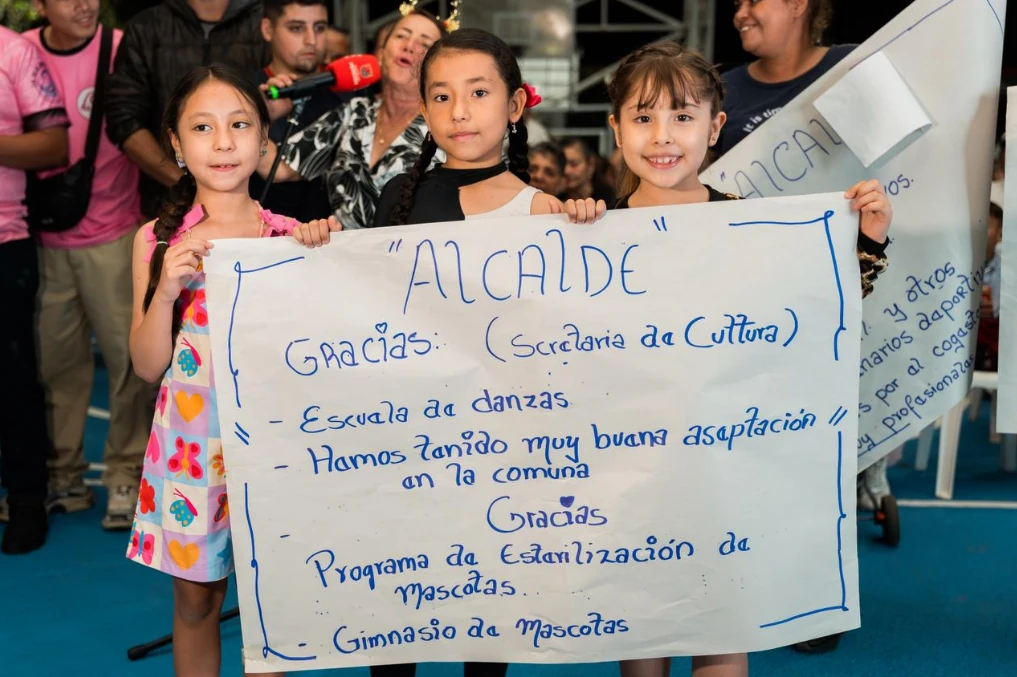 "AlCAlDE"
GRacias: (Scretaria de Cultura)
- Escuela de danzas
- Hemos tenido muy buena aseptación
en la comuna
Gracias
-
Programa de Estarilización de
Mascotas.
- Gimnasio de Mascotas
"AlCAl
os.
y otros
narios deportiv
s por al cogest
y profesionales
It is tim